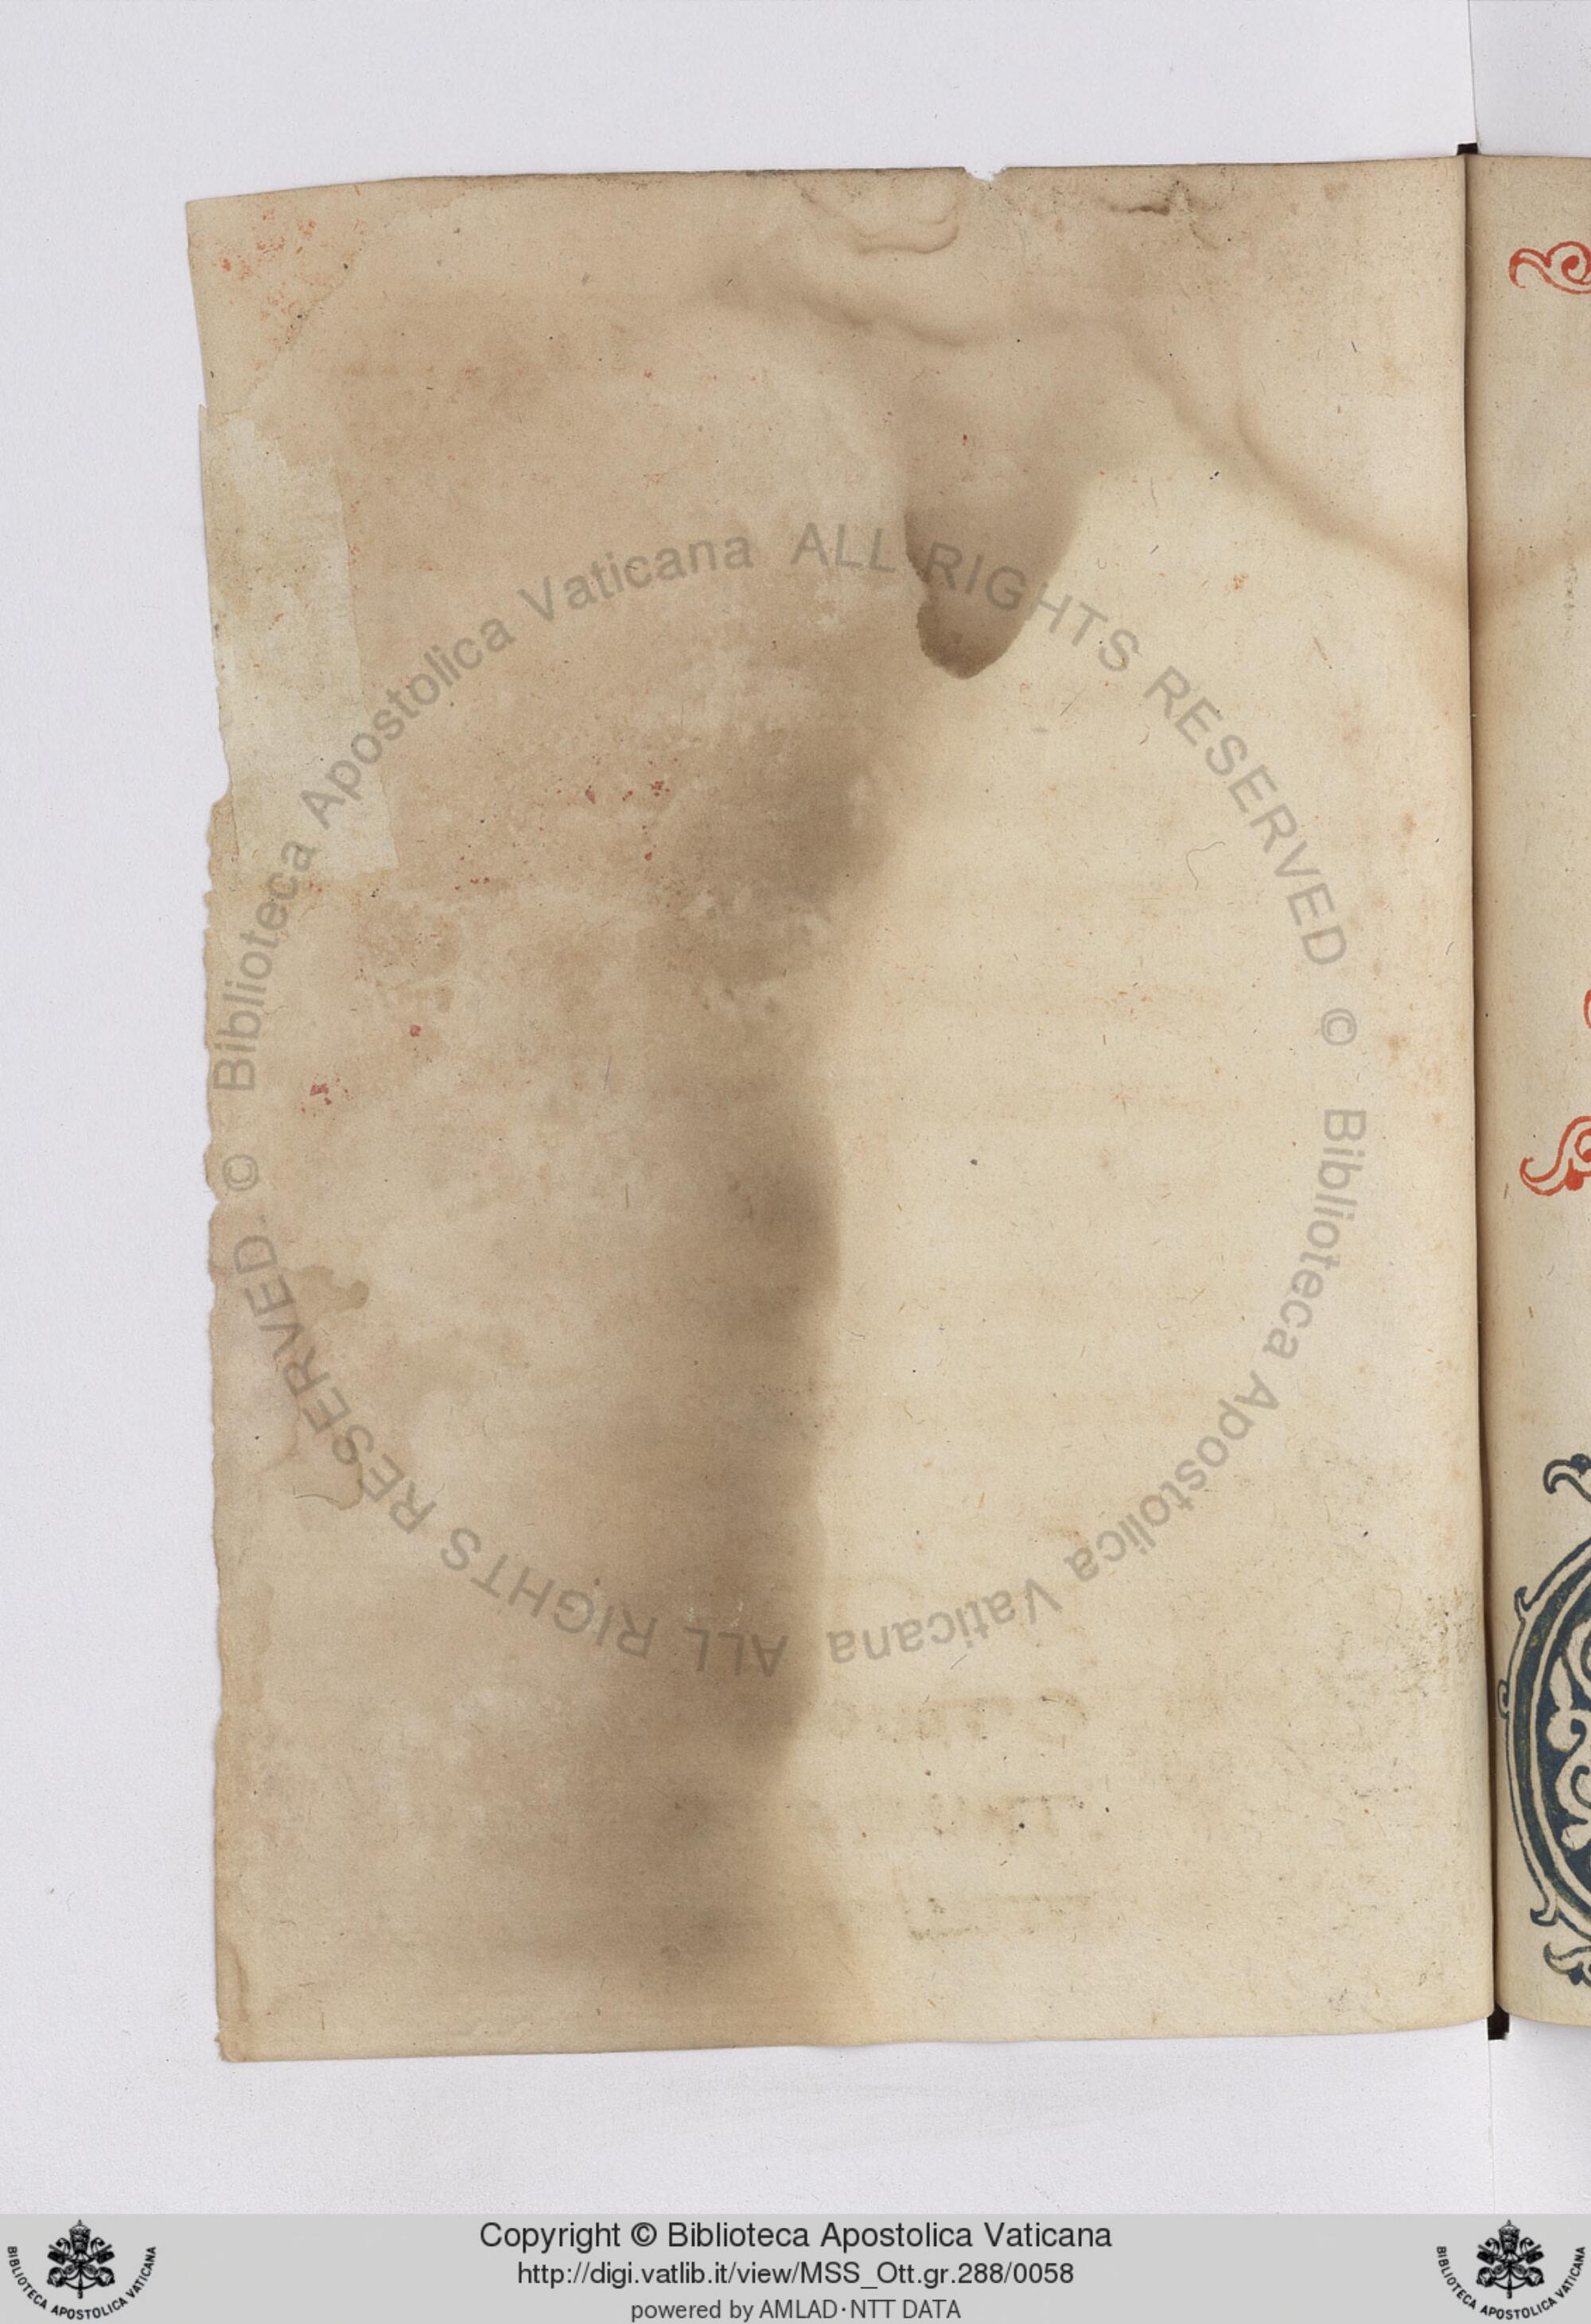 © Biblioteca Apostolica Vaticana ALL RIGHTS RESERVED © Biblioteca Apostolica Vaticana ALL RIGHTS RESERVED
Copyright © Biblioteca Apostolica Vaticana
http://digi.vatlib.it/view/MSS_Ott.gr.288/0058
powered by AMLAD·NTT DATA
BIBLIOTECA APOSTOLICA VATICANA
BIBLIOTECA APOSTOLICA VATICANA